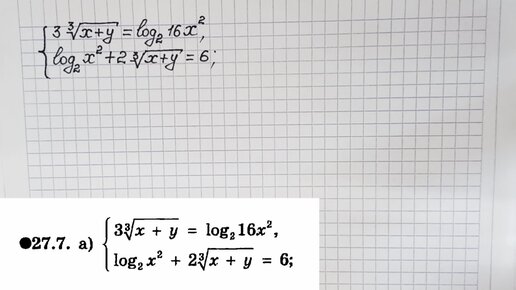 3∛(x+y) = log₂16x²,
log₂x² + 2∛(x+y) = 6;
●27.7. а) 3∛(x + y) = log₂16x²,
log₂x² + 2∛(x + y) = 6;